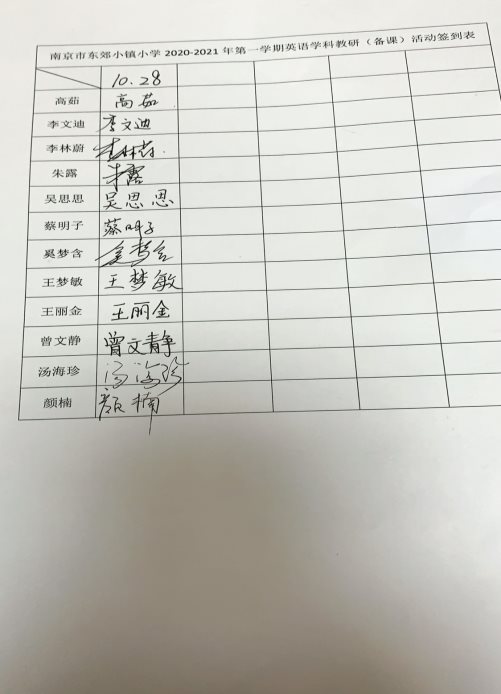 南京市东郊小镇小学 2020-2021 年第一学期英语学科教研（备课）活动签到表
10.28
高茹 高茹
李文迪 李文迪
李林蔚 李林蔚
朱露 朱露
吴思思 吴思思
蔡明子 蔡明子
奚梦含 奚梦含
王梦敏 王梦敏
王丽金 王丽金
曾文静 曾文静
汤海珍 汤海珍
颜楠 颜楠